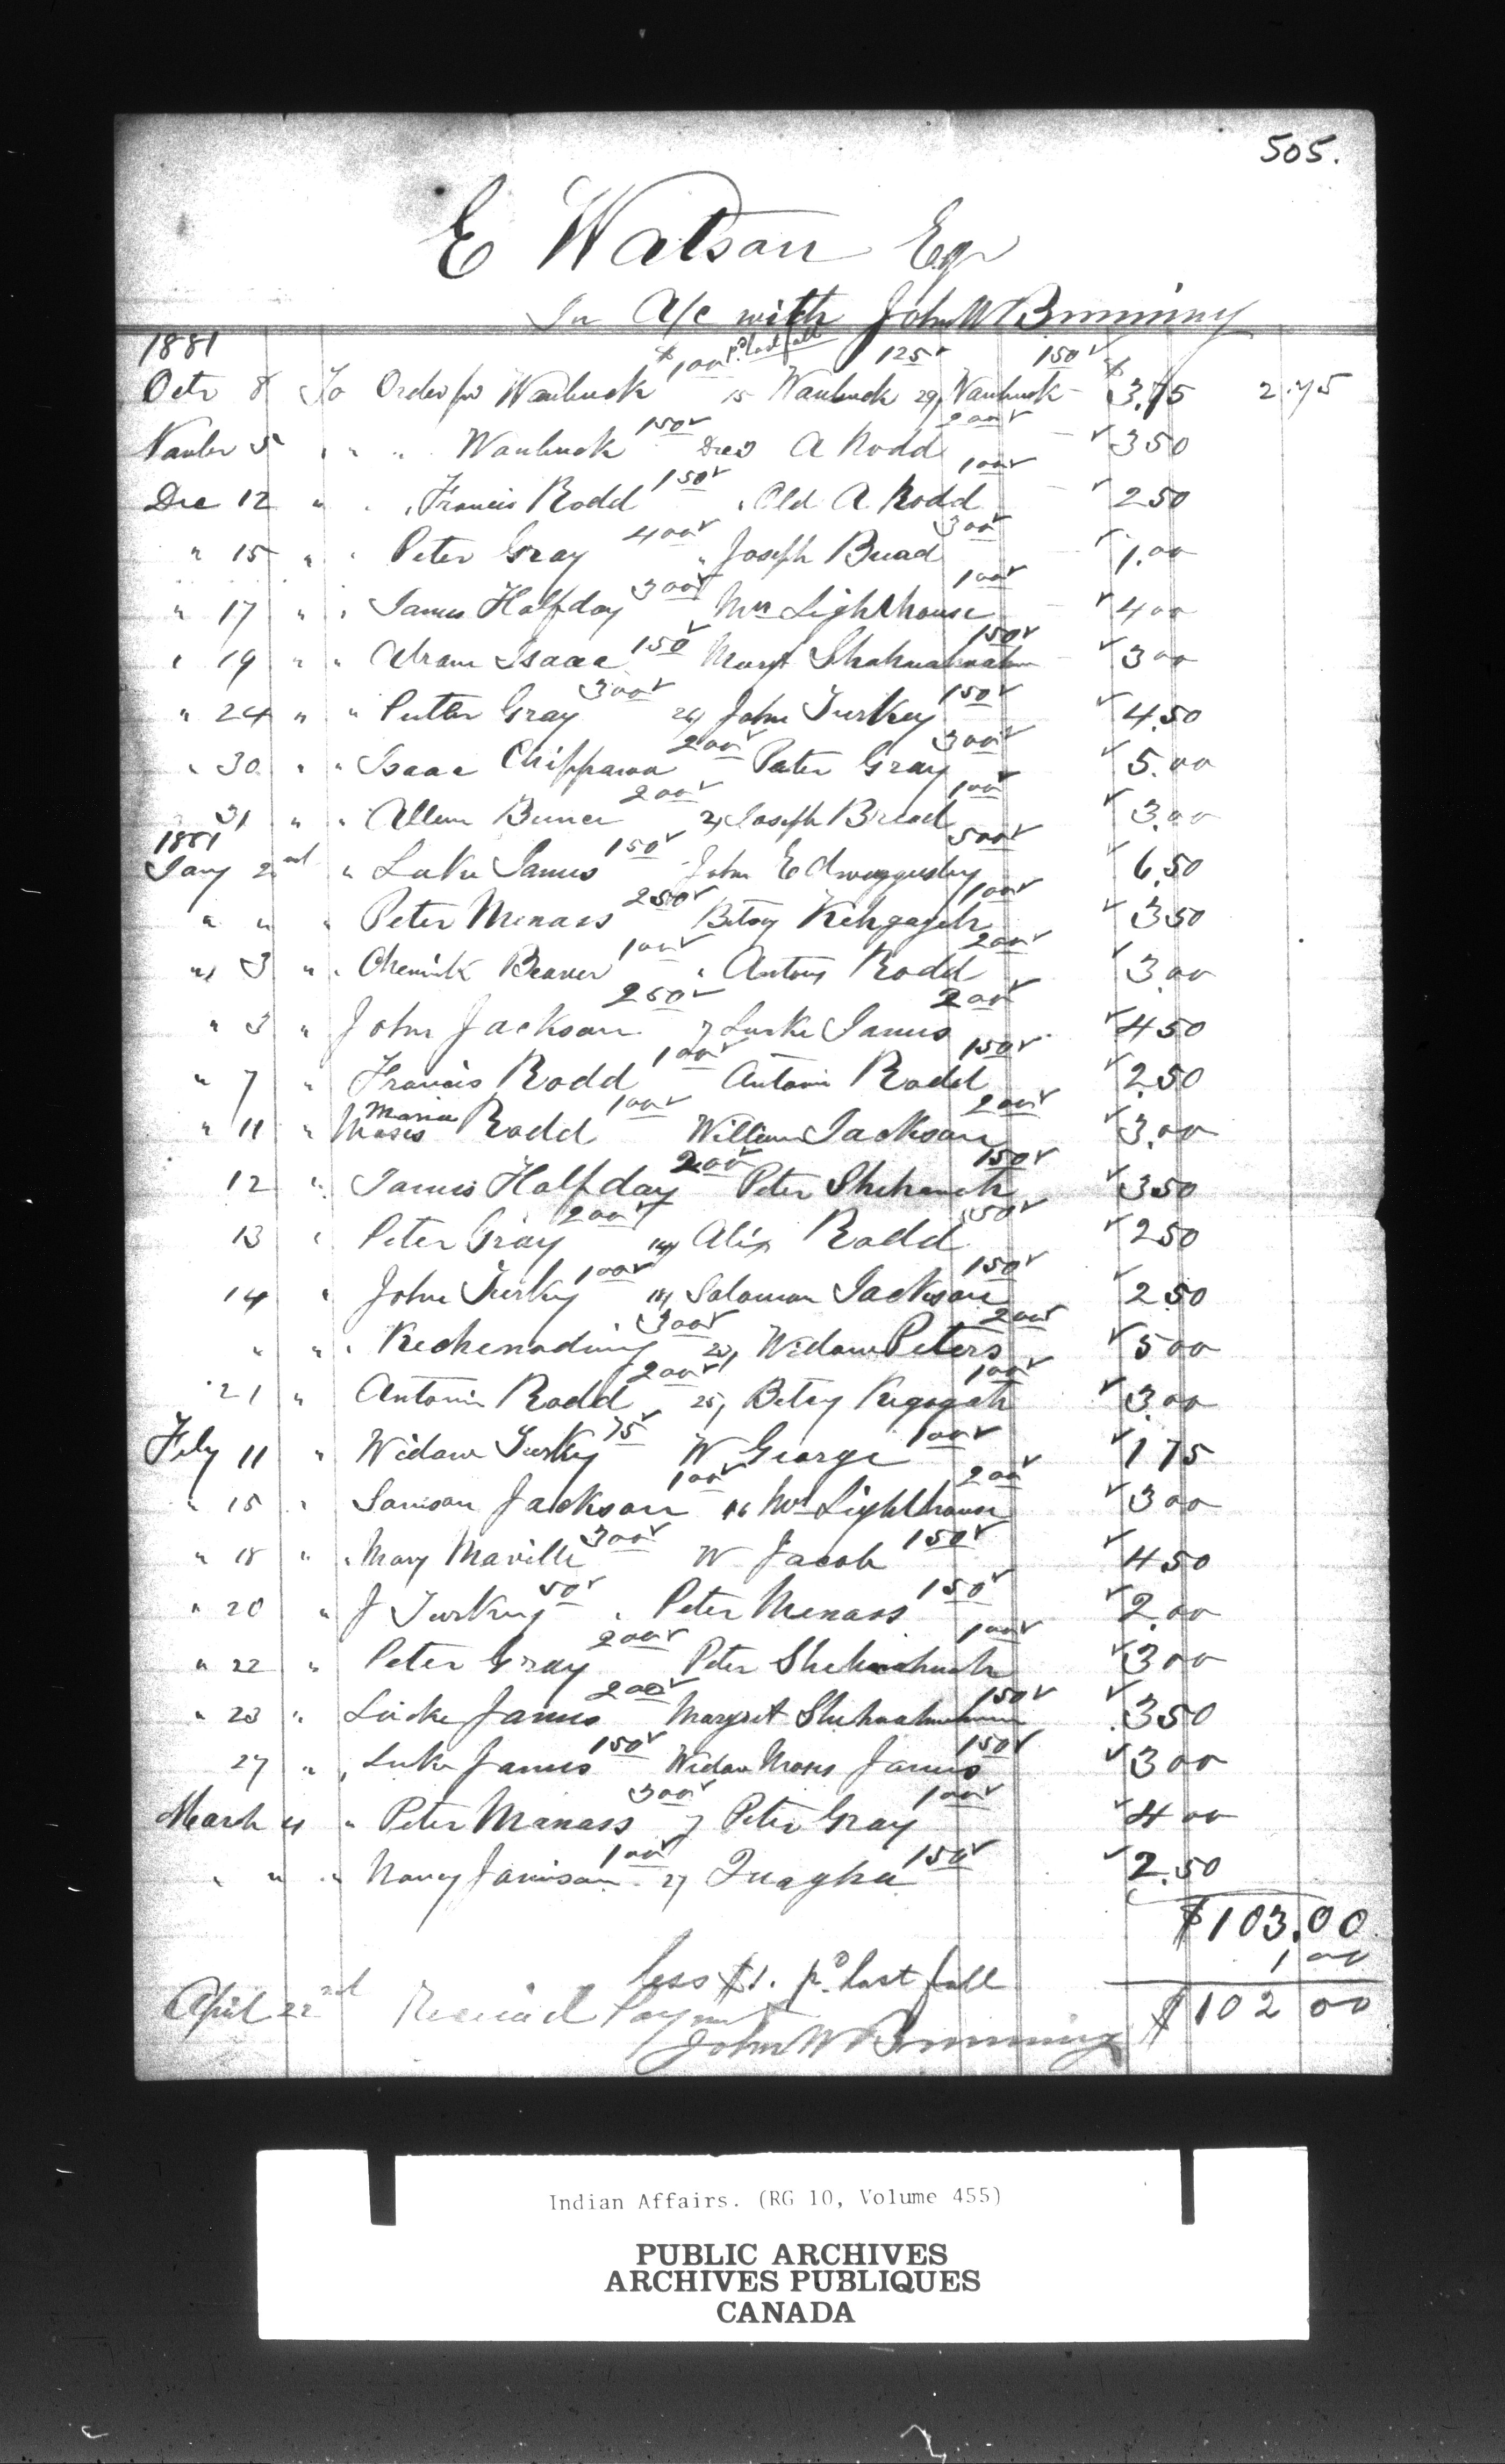 505.
E Watson Esqr
In A/c with John W Brunning
1881
Octr 8 To Order for Waubuck $1 00 pd last fall 15 Waubuck 125 29, Waubuck 150 $3.75 2.75
Novber 5 " " " Waubuck 150 Dec 3 A Rodd 200 350
Dec 12 " " Francis Rodd 150 " Old A Rodd 100 250
" 15 " " Peter Gray 400 " Joseph Bread 300 1.00
" 17 " " James Halfday 300 Mrs Lighthouse 100 400
" 19 " " Abram Isaac 150 Margt 150 300
" 24 " " Petter Gray 300 26, John Turkey 150 4.50
" 30 " " Isaac Chippawa 200 Peter Gray 300 5.00
31 " " Allen 200 2, Joseph Bread 100 3.00
1881
Jany 2nd " Luke James 150 John 500 6.50
" " " Peter Menass 250 Betsy Kehgageh 100 350
" 3 " " Beaver 100 " Antony Rodd 200 3.00
" 3 " John Jackson 250 7 Luke James 200 450
" 7 " Francis Rodd 100 Antoni Rodd 150 2.50
" 11 " Moses Maria Rodd 100 William Jackson 200 3.00
12 " James Halfday 200 Peter 150 350
13 " Peter Gray 200 14, Alix Rodd 50 250
14 " John Turky 100 Solomon Jackson 150 2.50
" " " Kechenoding 300 Widow Peters 200 500
21 " Antoni Rodd 200 25, Betsy Kegogah 100 3.00
Feby 11 " Widow Turky 75 W George 100 175
" 15 " Samson Jackson 100 16 Mrs Lighthouse 200 300
" 18 " " Mary Maville 300 W Jacob 150 450
" 20 " J Turkey 50 " Peter Menass 150 2.00
" 22 " Peter Gray 200 Peter 100 300
" 23 " Lucke James 200 Margret 150 350
27 " Luke James 150 Widow Moses James 150 300
March 4 " Peter Manass 300 7 Peter Gray 100 400
" " " Nancy Jamison 100 27 Quagha 150 2.50
$103.00
less $1. pd last fall 1 00
April 22nd Received Paymt $102 00
John W Brunning
Indian Affairs. (RG 10, Volume 455)
PUBLIC ARCHIVES
ARCHIVES PUBLIQUES
CANADA